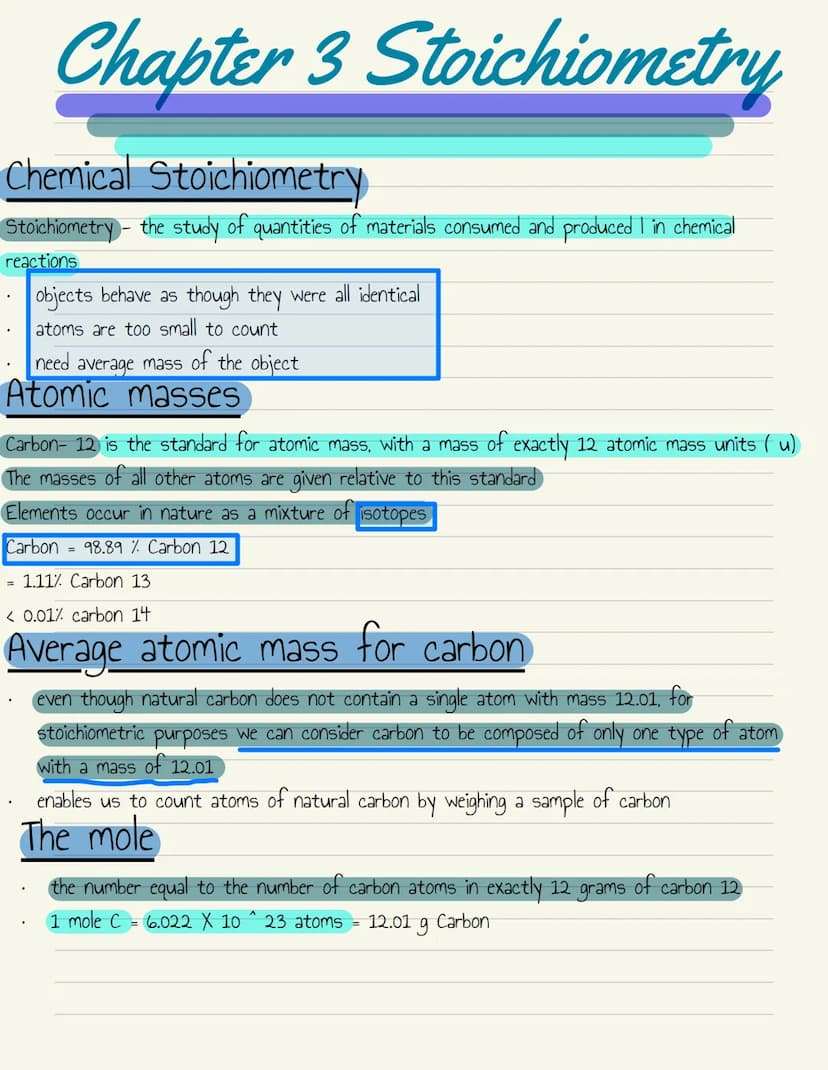 Chapter 3 Stoichiometry
Chemical Stoichiometry
Stoichiometry - the study of quantities of materials consumed and produced | in chemical
reactions
· objects behave as though they were all identical
· atoms are too small to count
· need average mass of the object
Atomic masses
Carbon- 12 is the standard for atomic mass, with a mass of exactly 12 atomic mass units ( u)
The masses of all other atoms are given relative to this standard
Elements occur in nature as a mixture of isotopes
Carbon = 98.89 % Carbon 12
= 1.11% Carbon 13
< 0.01% carbon 14
Average atomic mass for carbon
· even though natural carbon does not contain a single atom with mass 12.01, for
stoichiometric purposes we can consider carbon to be composed of only one type of atom
with a mass of 12.01
· enables us to count atoms of natural carbon by weighing a sample of carbon
The mole
· the number equal to the number of carbon atoms in exactly 12 grams of carbon 12
· 1 mole C = 6.022 X 10 ^ 23 atoms = 12.01 g Carbon